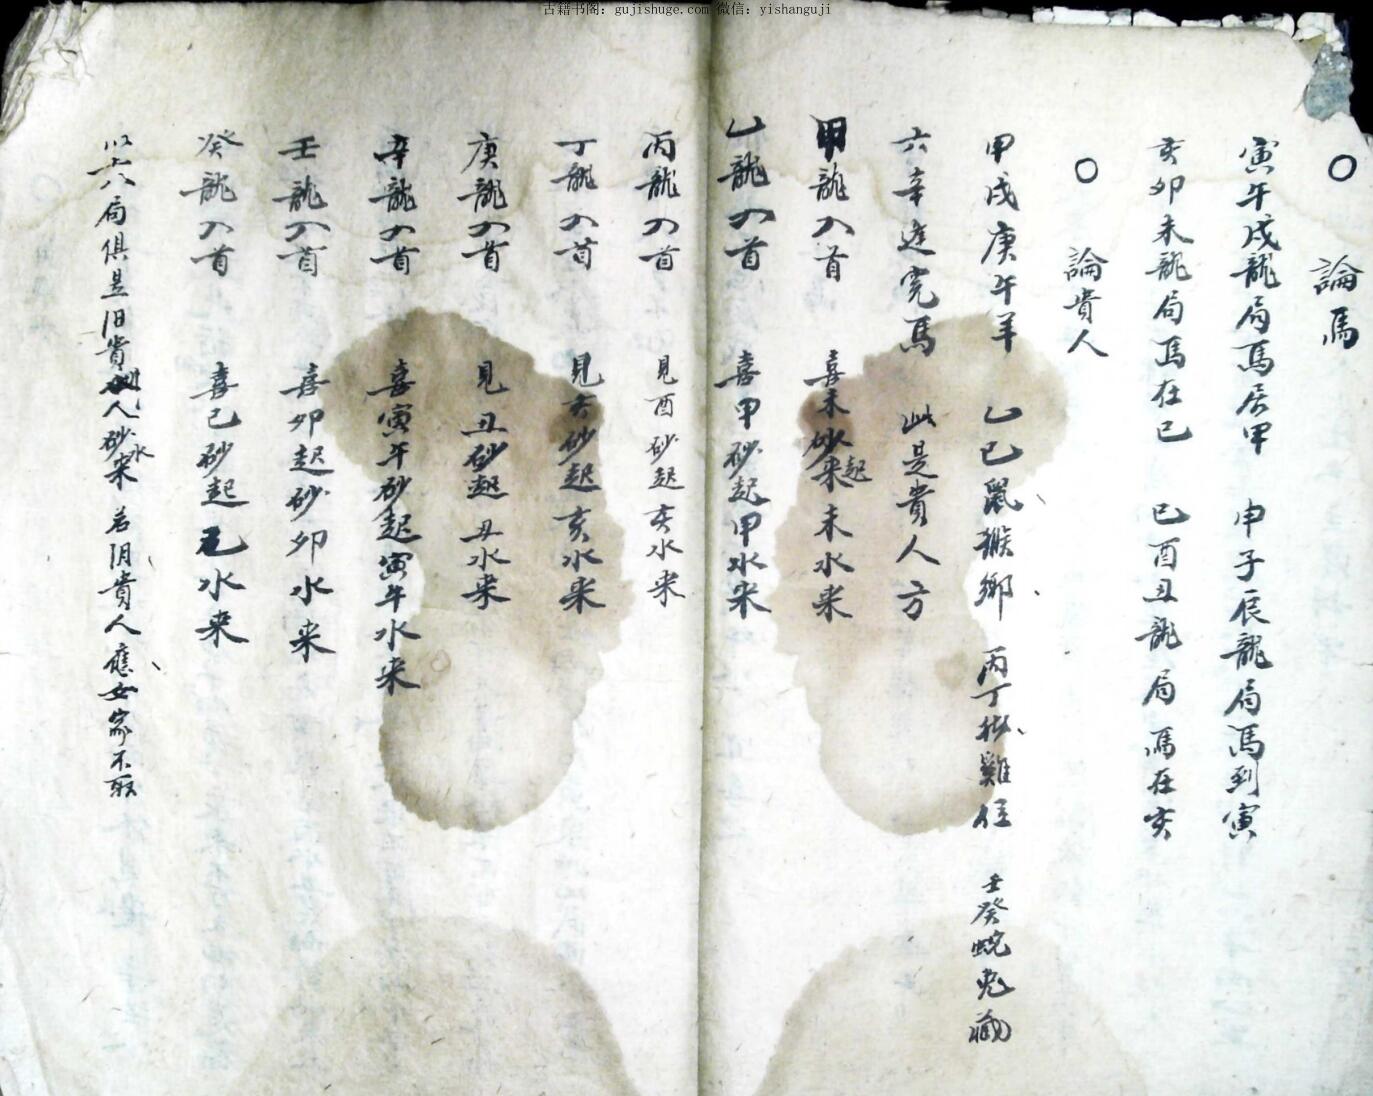 古籍书阁：gujishuge.com 微信：yishanguji
○ 論馬
寅午戌龍局馬居甲 申子辰龍局馮到寅
亥卯未龍局馬在巳 巳酉丑龍局馮在亥
○ 論貴人
甲戌庚午羊 乙巳鼠猴鄉 丙丁猪雞位 壬癸蛇兔藏
六辛逢虎馬 此是貴人方
甲龍入首 喜未砂起来未水来
乙龍入首 喜甲砂起甲水来
丙龍入首 見酉砂起亥水来
丁龍入首 見亥砂起亥水来
庚龍入首 見丑砂起丑水来
辛龍入首 喜寅午砂起寅午水来
壬龍入首 喜卯起砂卯水来
癸龍入首 喜巳砂起巳水来
以上八局俱是阳貴人砂水来 若阴貴人應女家不取